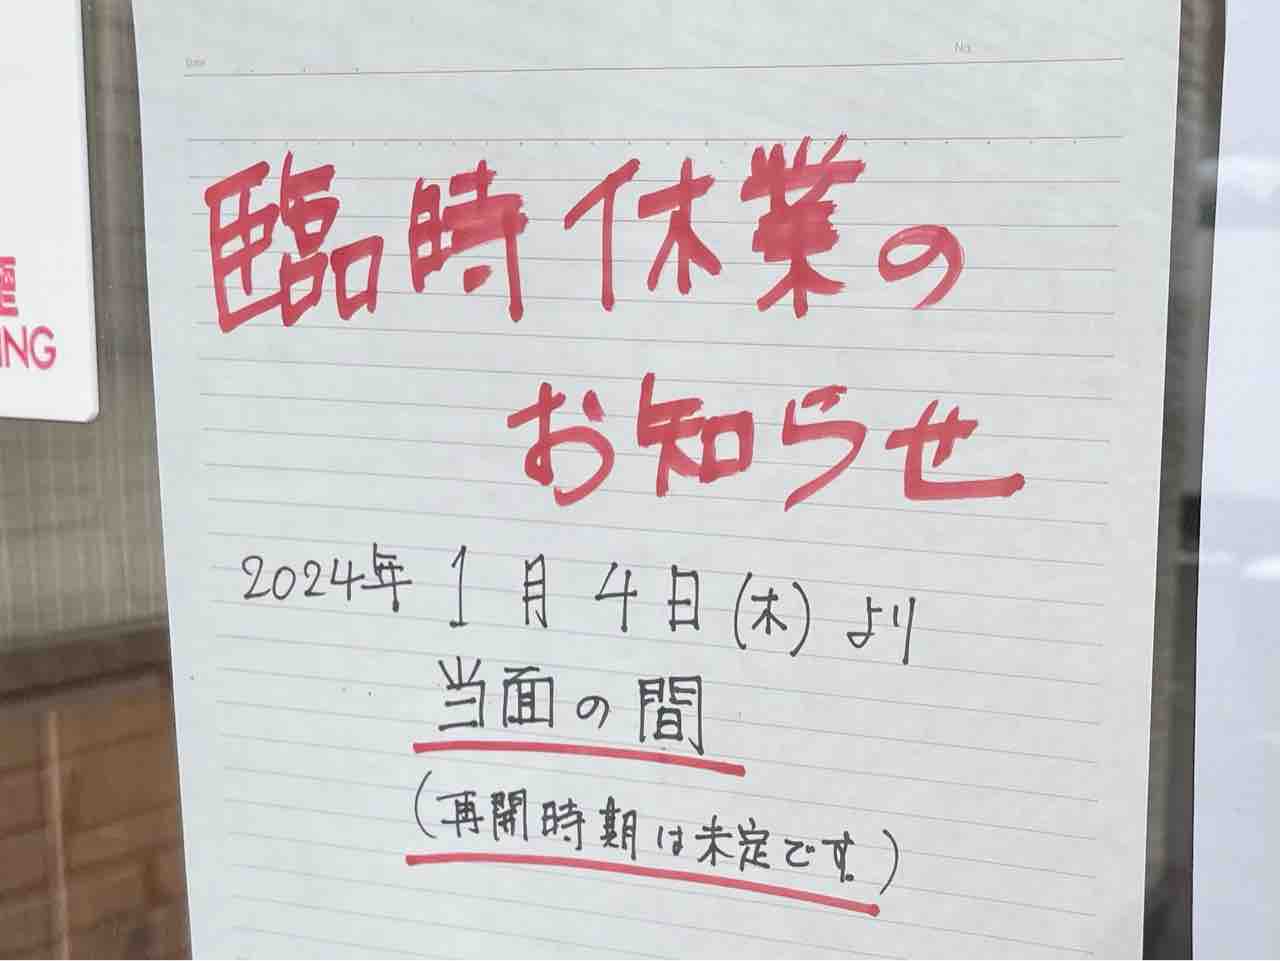 Date
No.
臨時休業の
お知らせ
2024年 1月4日(木)より
当面の間
(再開時期は未定です。)
ING